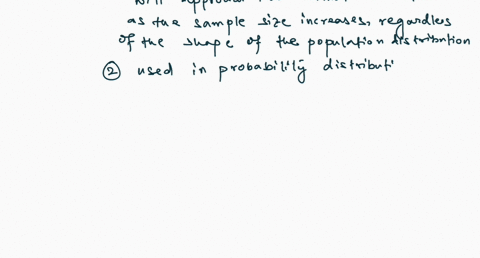 as the sample size increases, regardless
of the shape of the population distribution
② used in probability distributi